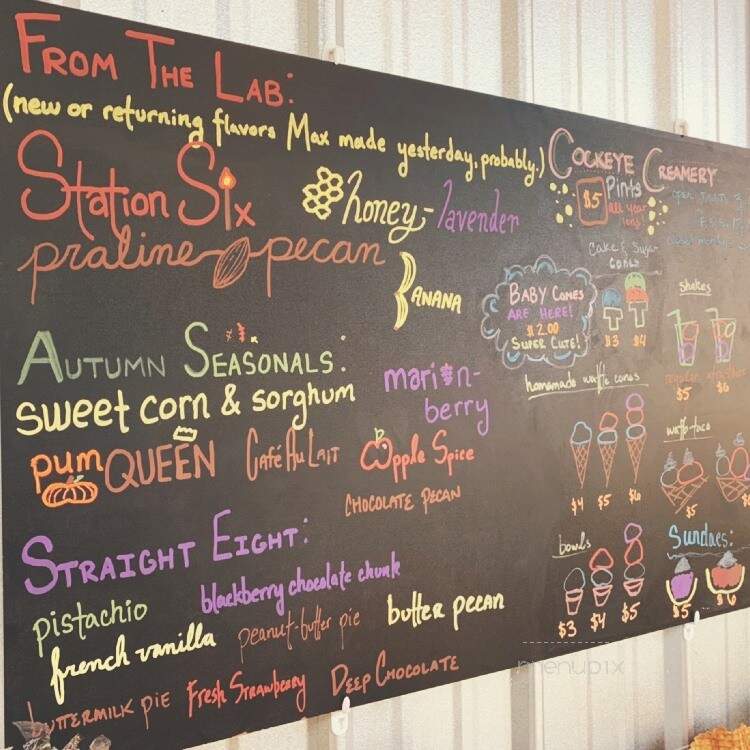 FROM THE LAB:
(new or returning flavors Max made yesterday, probably.)
Station Six
honey-lavender
praline pecan
BANANA
AUTUMN SEASONALS:
sweet corn & sorghum
marion-
berry
pumQUEEN
Café Au Lait
Apple Spice
CHOCOLATE PECAN
STRAIGHT EIGHT:
pistachio
blackberry chocolate chunk
french vanilla
peanut-butter pie
butter pecan
BUTTERMILK PIE
Fresh Strawberry
DEEP CHOCOLATE
COCKEYE CREAMERY
$5
Pints
all year
long
Cake & Sugar
CONES
$3 $4
BABY CONES
ARE HERE!
$2.00
SUPER CUTE!
shakes
regular
$5 $6
homemade waffle cones
$4 $5 $6
waffle taco
$5
bowls
$3 $4 $5
Sundaes:
$5 $6
menupix